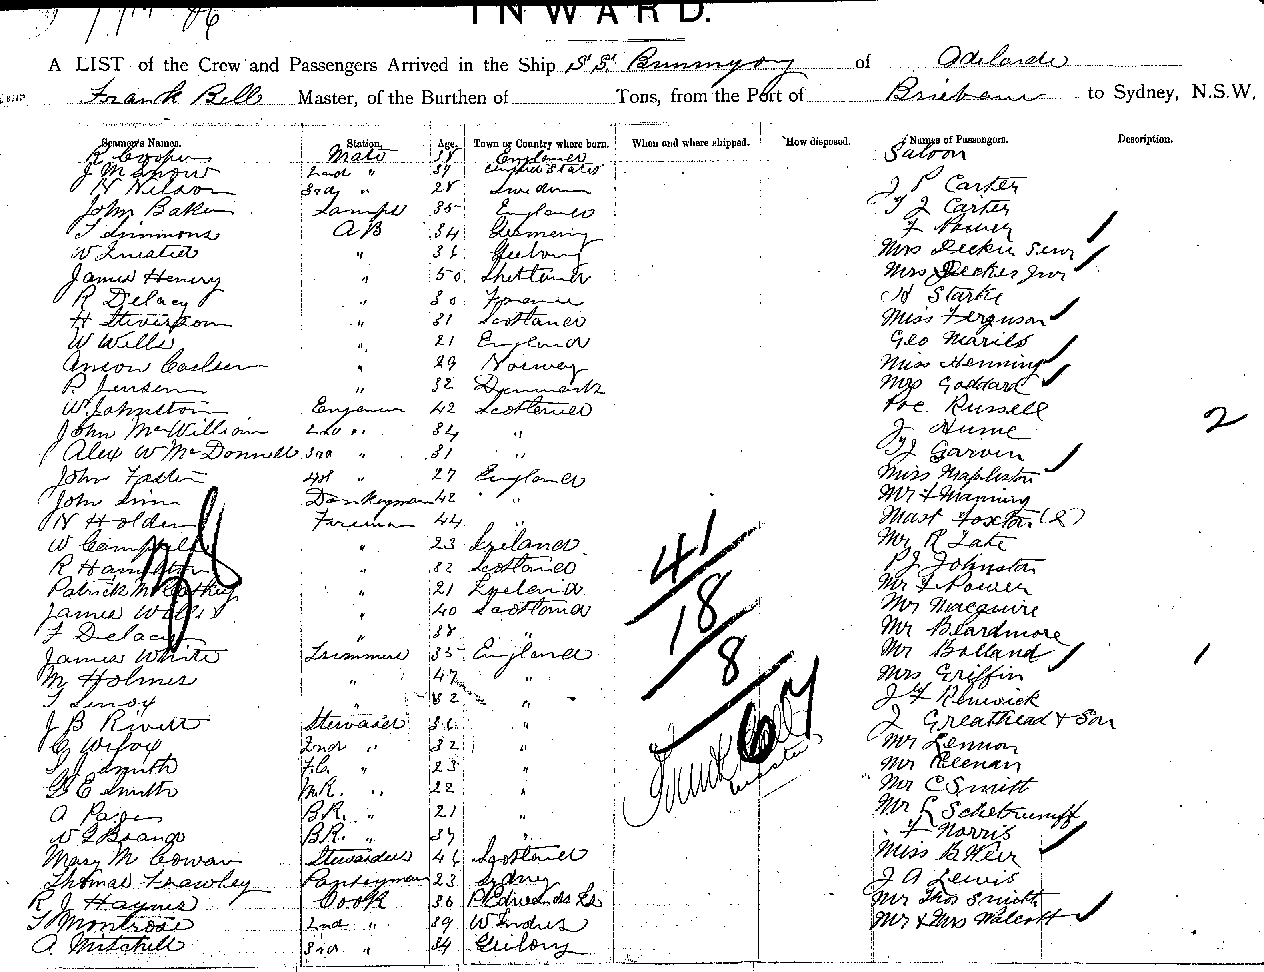 INWARD.
A LIST of the Crew and Passengers Arrived in the Ship S.S. Bunnyong of Adelaide
Frank Bell Master, of the Burthen of Tons, from the Port of Brisbane to Sydney, N.S.W.
Seamen's Names. Station. Age. Town or Country where born. When and where shipped. How disposed. Names of Passengers. Description.
R Cooper Mate 38 England Saloon
J 2nd " 39 United States
N Nilson 3rd " 28 Sweden J P Carter
John Baker Lamps 35 England T J Carter
T Simmons AB 34 Germany F Power
W " 36 Geelong Mrs Deckie Senr
James Henry " 50 Shetland Mrs Deckes Jnr
R Delacy " 30 France H Starke
H Stivenson " 31 Scotland Miss Ferguson
W Wills " 21 England Geo
Anson Carlsen " 29 Norway Miss Henning
P. Jensen " 32 Denmark Mrs Goddard
W Johnston Engineer 42 Scotland Russell
John McWilliam 2nd " 32 " J Hume
Alex W McDonnell 3rd " 31 " Garvin
John Foster 4th " 27 England Miss
John Donkeyman 42 " Mr F Manning
N Holden Fireman 44 " Mast Foxton (2)
W Campbell " 23 Ireland Mr R Tate
R Hamilton " 32 Scotland P J Johnston
Patrick " 21 Ireland Mr F Power
James Wills " 40 Scotland Mr Macguire
F Delacy " 38 " Mr Beardmore
James White Trimmers 35 England Mr Bolland
M Holmes " 47 " Mrs Griffin
T Lenoy " 32 " J F Renwick
J B Rivett Steward 36 " J Greathead & Son
G Wilcox 2nd " 32 " Mr Lennon
T J Smith F.C. " 23 " Mr Keenan
G E Smith M.R. " 22 " Mr C Smith
A Pages B.R. " 21 " Mr
W B.R. " 37 " F Norris
Mary McCowan Stewardess 46 Scotland Miss B Weir
Thomas Frawley Pantryman 23 Sydney J A Lewis
R J Haynes Cook 36 Mr Thos Smith
T Montrose 2nd " 39 W Indies Mr & Mrs Walcott
A. Mitchell 3rd " 34 Geelong
38
41
18
8
67
Frank Bell
Master
2
1